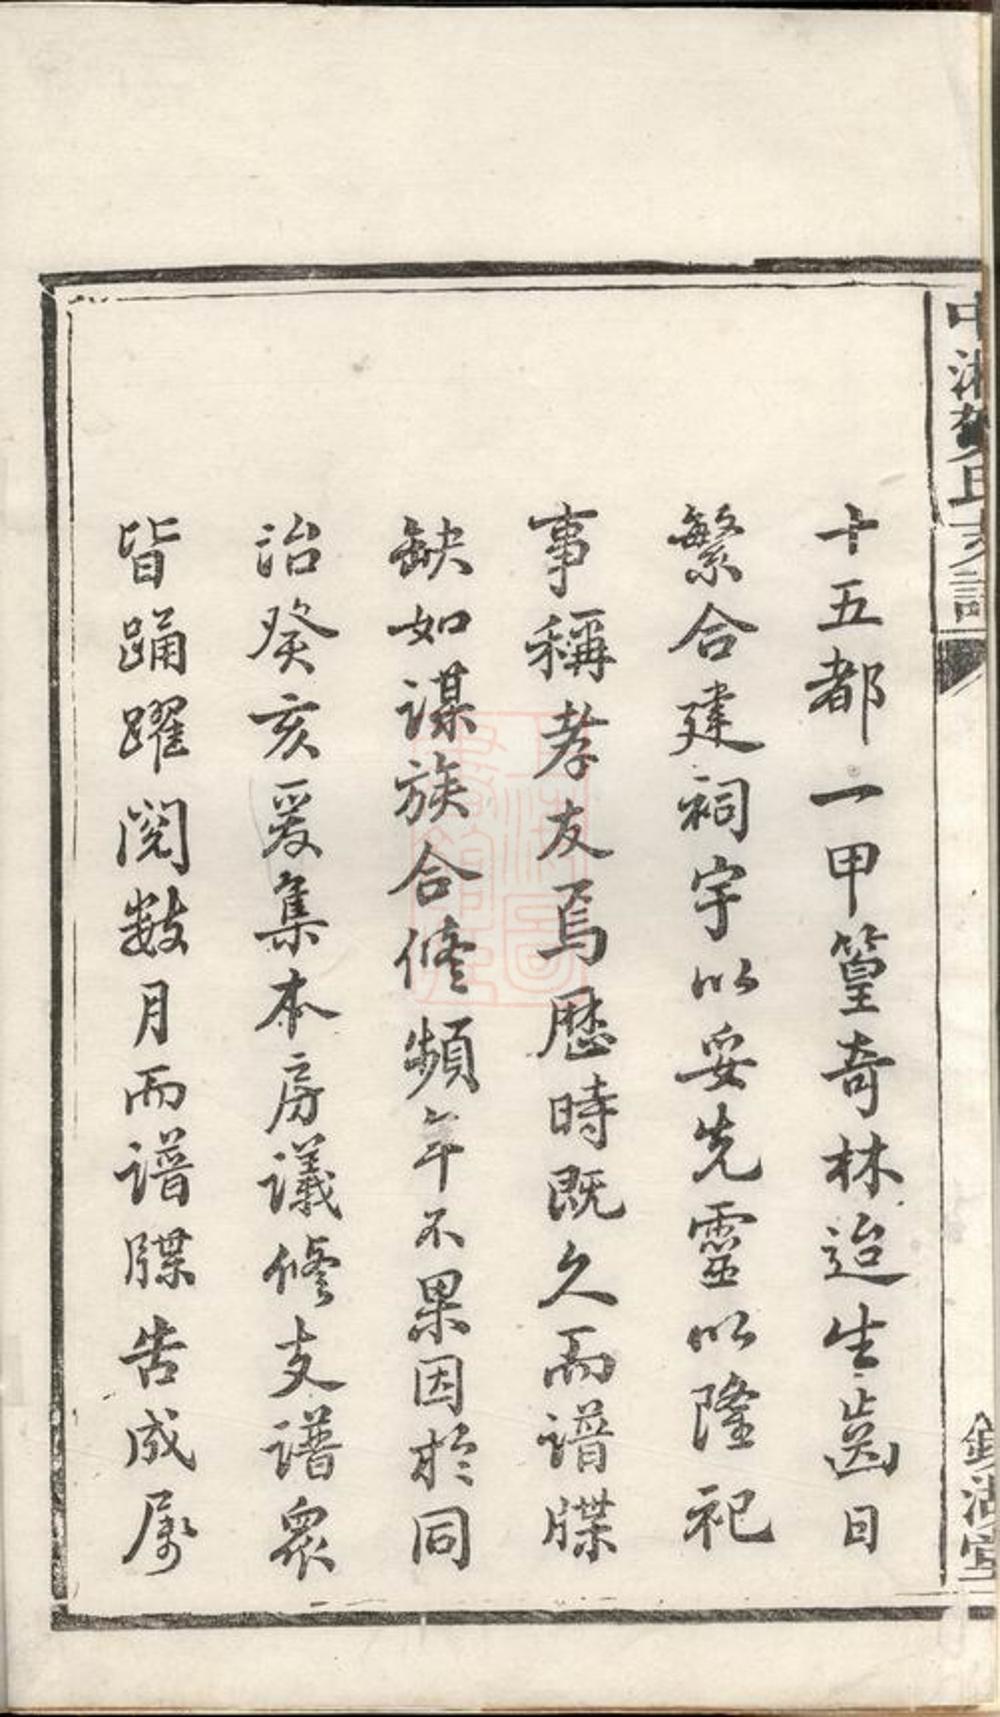 中湘賀氏支譜
鑑湖堂
十五都一甲篁奇林迨生齒日
繁合建祠宇以妥先靈以隆祀
事稱孝友焉歷時既久而譜牒
缺如謀族合修頻年不果因於同
治癸亥爰集本房議修支譜衆
皆踴躍閱數月而譜牒告成屬